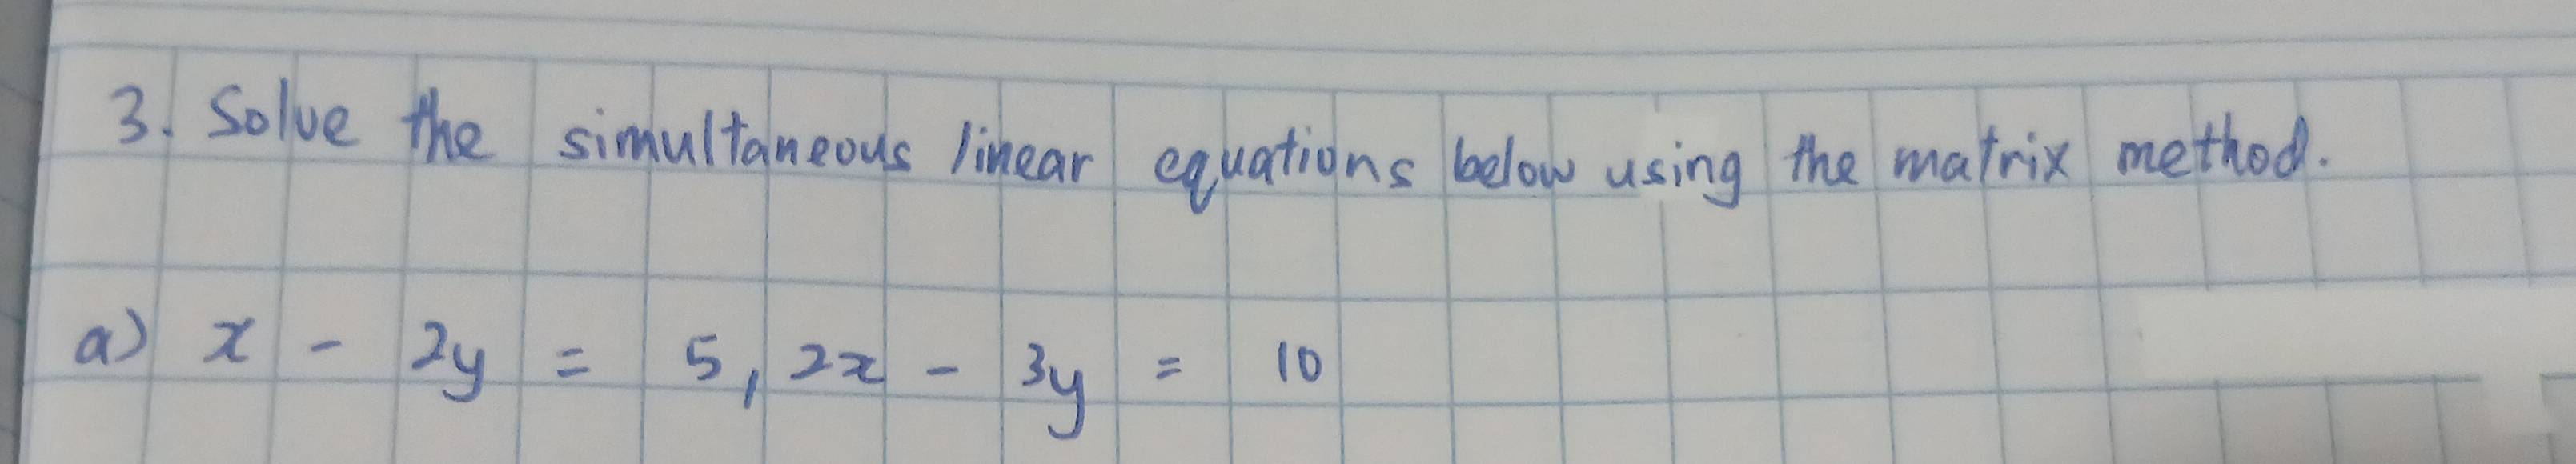 3. Solve the simultaneous linear equations below using the matrix method.
a) x - 2y = 5, 2x - 3y = 10